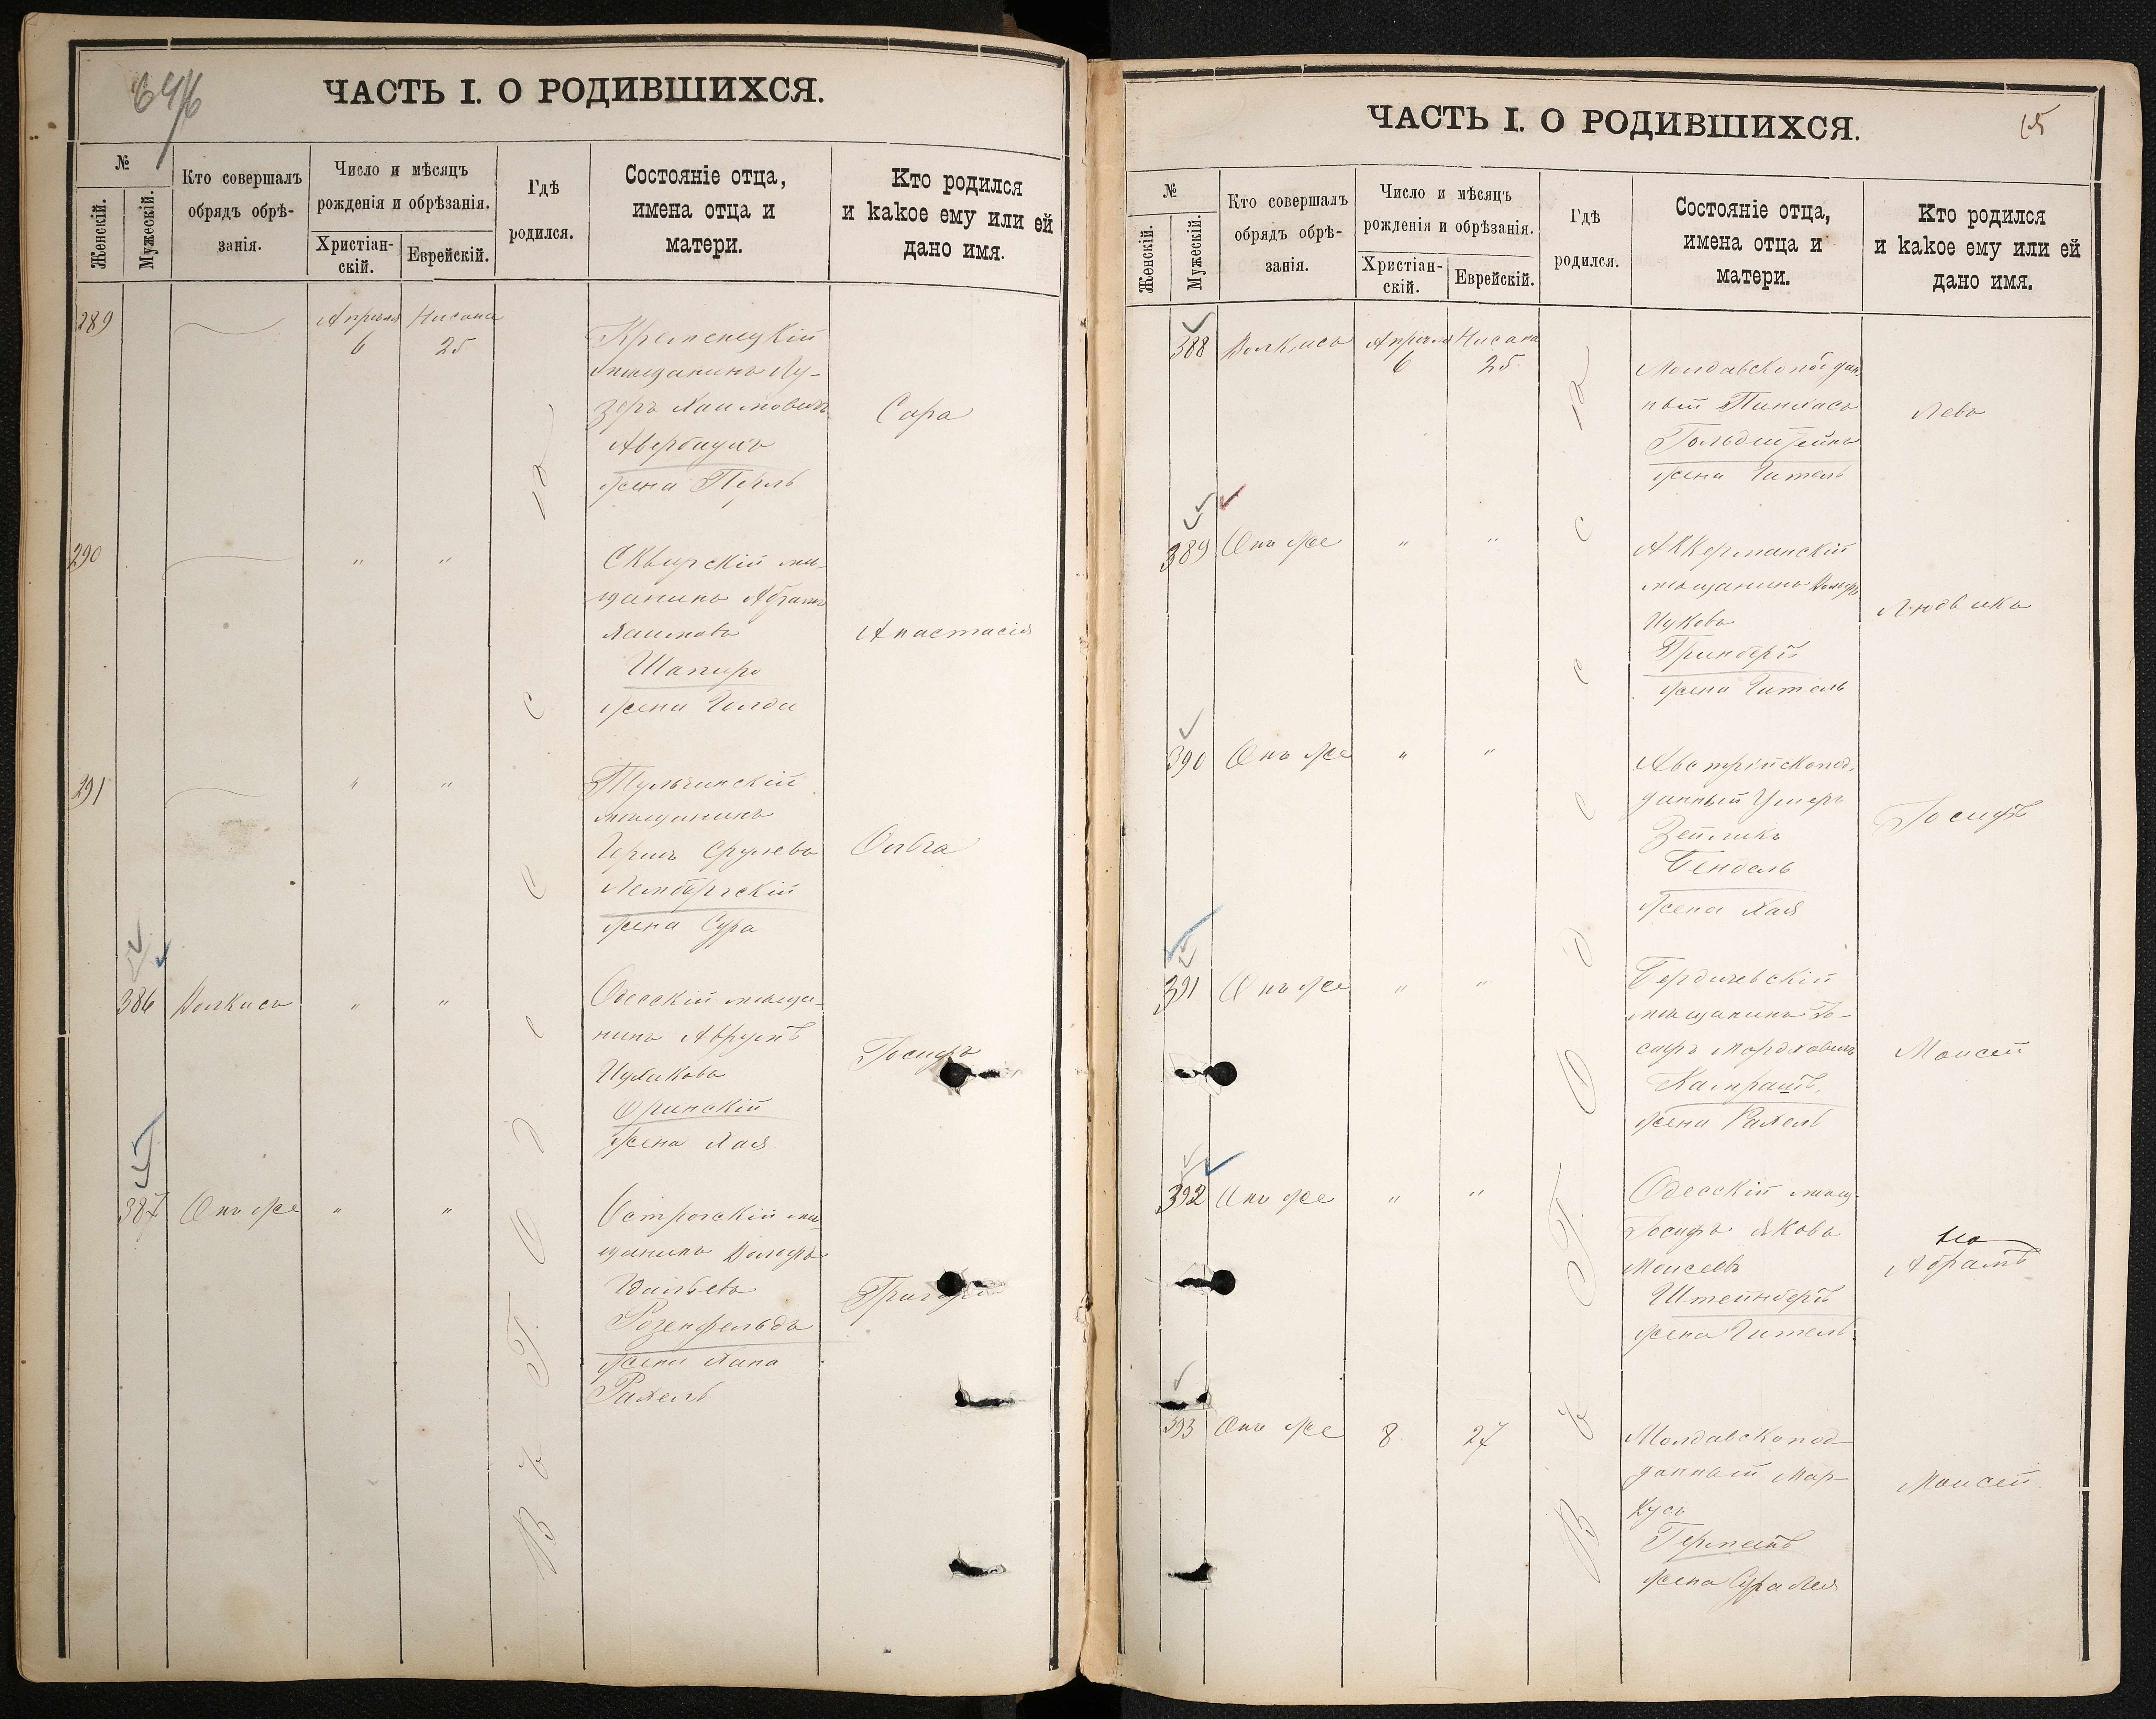 ЧАСТЬ I. О РОДИВШИХСЯ.
№
Женскій.
Мужескій.
Кто совершалъ
обрядъ обрѣ-
занія.
Число и мѣсяцъ
рожденія и обрѣзанія.
Христіан-
скій.
Еврейскій.
Гдѣ
родился.
Состояніе отца,
имена отца и
матери.
Кто родился
и какое ему или ей
дано имя.
289
Апрѣля
6
Нисана
25
Кременецкій
мѣщанинъ Лу-
зеръ Хаимовичъ
Авербухъ
жена Перль
Сара
290
" "
Сквирскій мѣ-
щанинъ Абрамъ
Хаимовъ
Шапиро
жена Голда
Анастасія
291
" "
Тульчинскій
мѣщанинъ
Гершъ Срулевъ
Лембергскій
жена Сура
Ольга
386
Волкисъ
" "
Одесскій мѣща-
нинъ Аврумъ
Ицковъ
жена Хая
Іосифъ
387
Онъ же
" "
Острогскій мѣ-
щанинъ Вольфъ
Розенфельдъ
жена Хана
Рахель
Въ г. Одессѣ
ЧАСТЬ I. О РОДИВШИХСЯ.
65
№
Женскій.
Мужескій.
Кто совершалъ
обрядъ обрѣ-
занія.
Число и мѣсяцъ
рожденія и обрѣзанія.
Христіан-
скій.
Еврейскій.
Гдѣ
родился.
Состояніе отца,
имена отца и
матери.
Кто родился
и какое ему или ей
дано имя.
388
Волкисъ
Апрѣля
6
Нисана
25
Молдавскоподдан-
ный Пинхасъ
Гольдштейнъ
жена Гитель
Левъ
389
Онъ же
" "
Аккерманскій
мѣщанинъ Вольфъ
Ицковъ
Гринбергъ
жена Гитель
Людвикъ
390
Онъ же
" "
Австрійскопод-
данный Ушеръ
Зейликъ
Бендель
жена Хая
Іосифъ
391
Онъ же
" "
Бердичевскій
мѣщанинъ Іо-
сифъ Мордковичъ
жена Рахель
Моисей
392
Онъ же
" "
Одесскій мѣщ.
Іосифъ Яковъ
Моисеевъ
Штейнбергъ
жена Гитель
Абрамъ
393
Онъ же
8 27
Молдавскопод-
данный Мар-
кусъ
Германъ
жена Сура Лея
Моисей
Въ г. Одессѣ